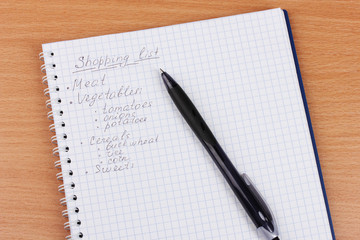 Shopping list
• Meat
• Vegetables
• tomatoes
• onions
• potatoes
• Cereals
• buckwheat
• rice
• corn
• Sweets